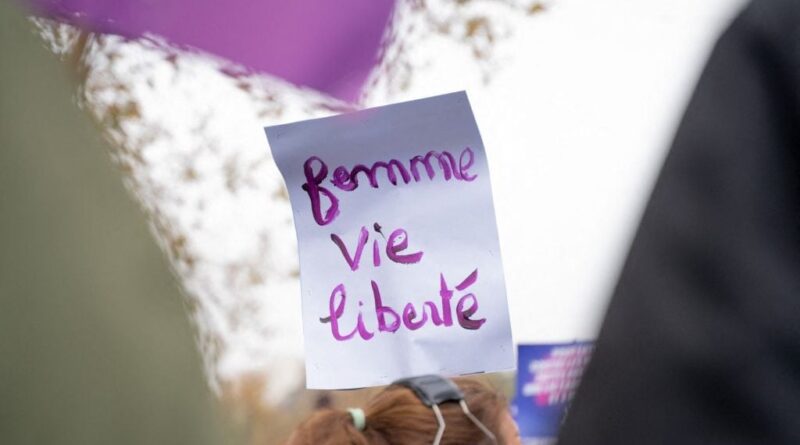 femme
vie
liberté